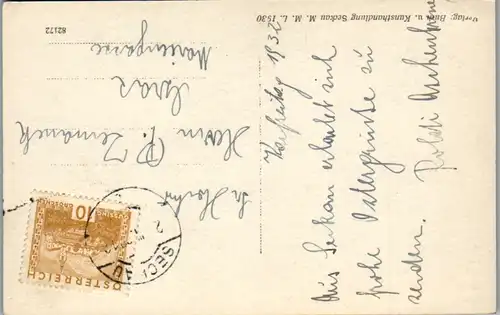 Verlag: Buch u. Kunsthandlung Seckau M. M. L. 1530
82172
Karfreitag 1932
Aus Seckau erlaubt sich
frohe Ostergrüße zu
senden. Poldi
Herrn P.
Graz
Mariengasse
10 GROSCHEN 10
ÖSTERREICH
SECKAU